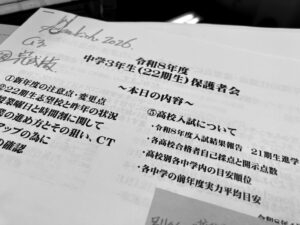 2026.
令和8年度
中学3年生(22期生)保護者会
~本日の内容~
①新年度の注意点・変更点
②22期生志望校と昨年の状況
授業曜日と時間割に関して
の進め方とその狙い、CT
アップの為に
の確認
⑤高校入試について
・令和8年度入試結果報告 21期生進学
・各高校合格者自己採点と開示点数
・高校別各中学内の目安順位
・各中学の前年度実力平均目安